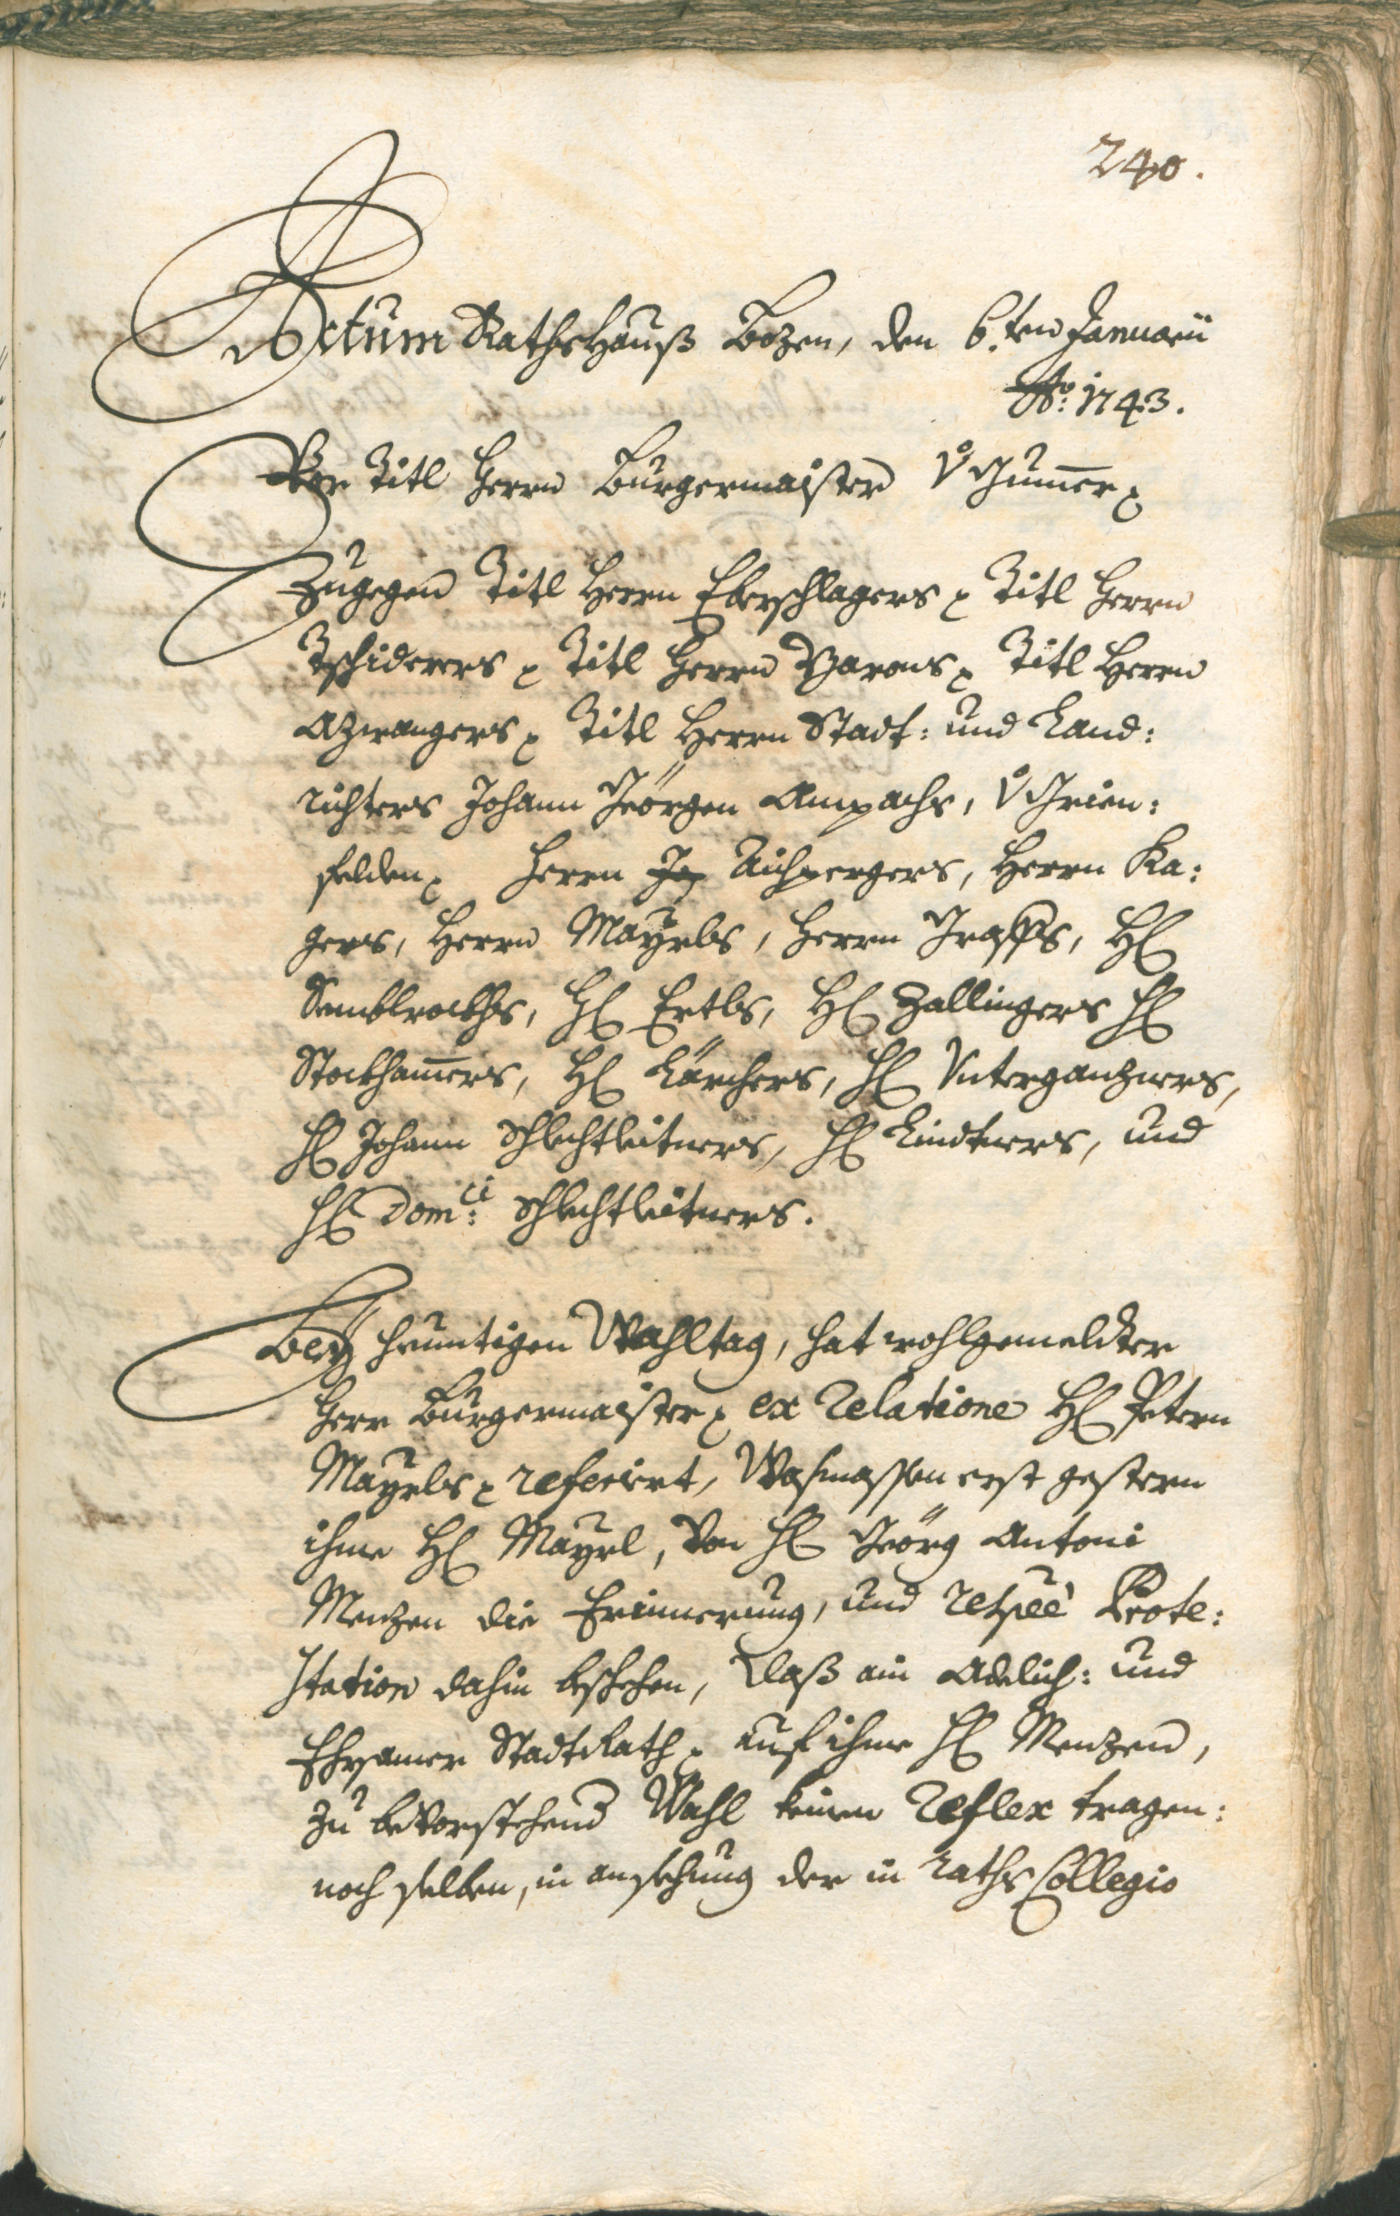 240.
Actum Rathshauß Bozen, den 6.ten Januarii
Ao: 1743.
Vor Titl Herrn Burgermaister v Gum̅er
Zugegen Titl Herrn Eberschlagers Titl Herrn
Tschiderers Titl Herrn Barons Titl Herrn
Azwangers Titl Herrn Stadt: und Land:
richters Johann Geörgen Ampachs, v Grien:
felden Herrn Aichpergers, Herrn Ka:
gers, Herrn Mayrls, Herrn Graffs, H
Semblrockhs, H Ertls, H Zallingers H
Stockham̅ers, H Kärchers, H Unterganzners,
H Johann Schlechtleitners, H Lindtners, und
H Dom:ci Schlechtleitners.
Bey heuntigen Wahltag, hat wohlgemeldter
Herr Burgermaister ex relatione H Petern
Mayrls referirt, Wasmassen erst gestern
ihme H Mayrl, von H Geörg Antoni
Menzen die Erinnerung, und respée Prote:
station dahin beschehen, daß ain Adelich: und
Ehrsamer Stadt Rath auf ihme H Menzen,
zu bevorstehend Wahl keinen reflex tragen:
noch selben, in ansehung der in raths Collegio